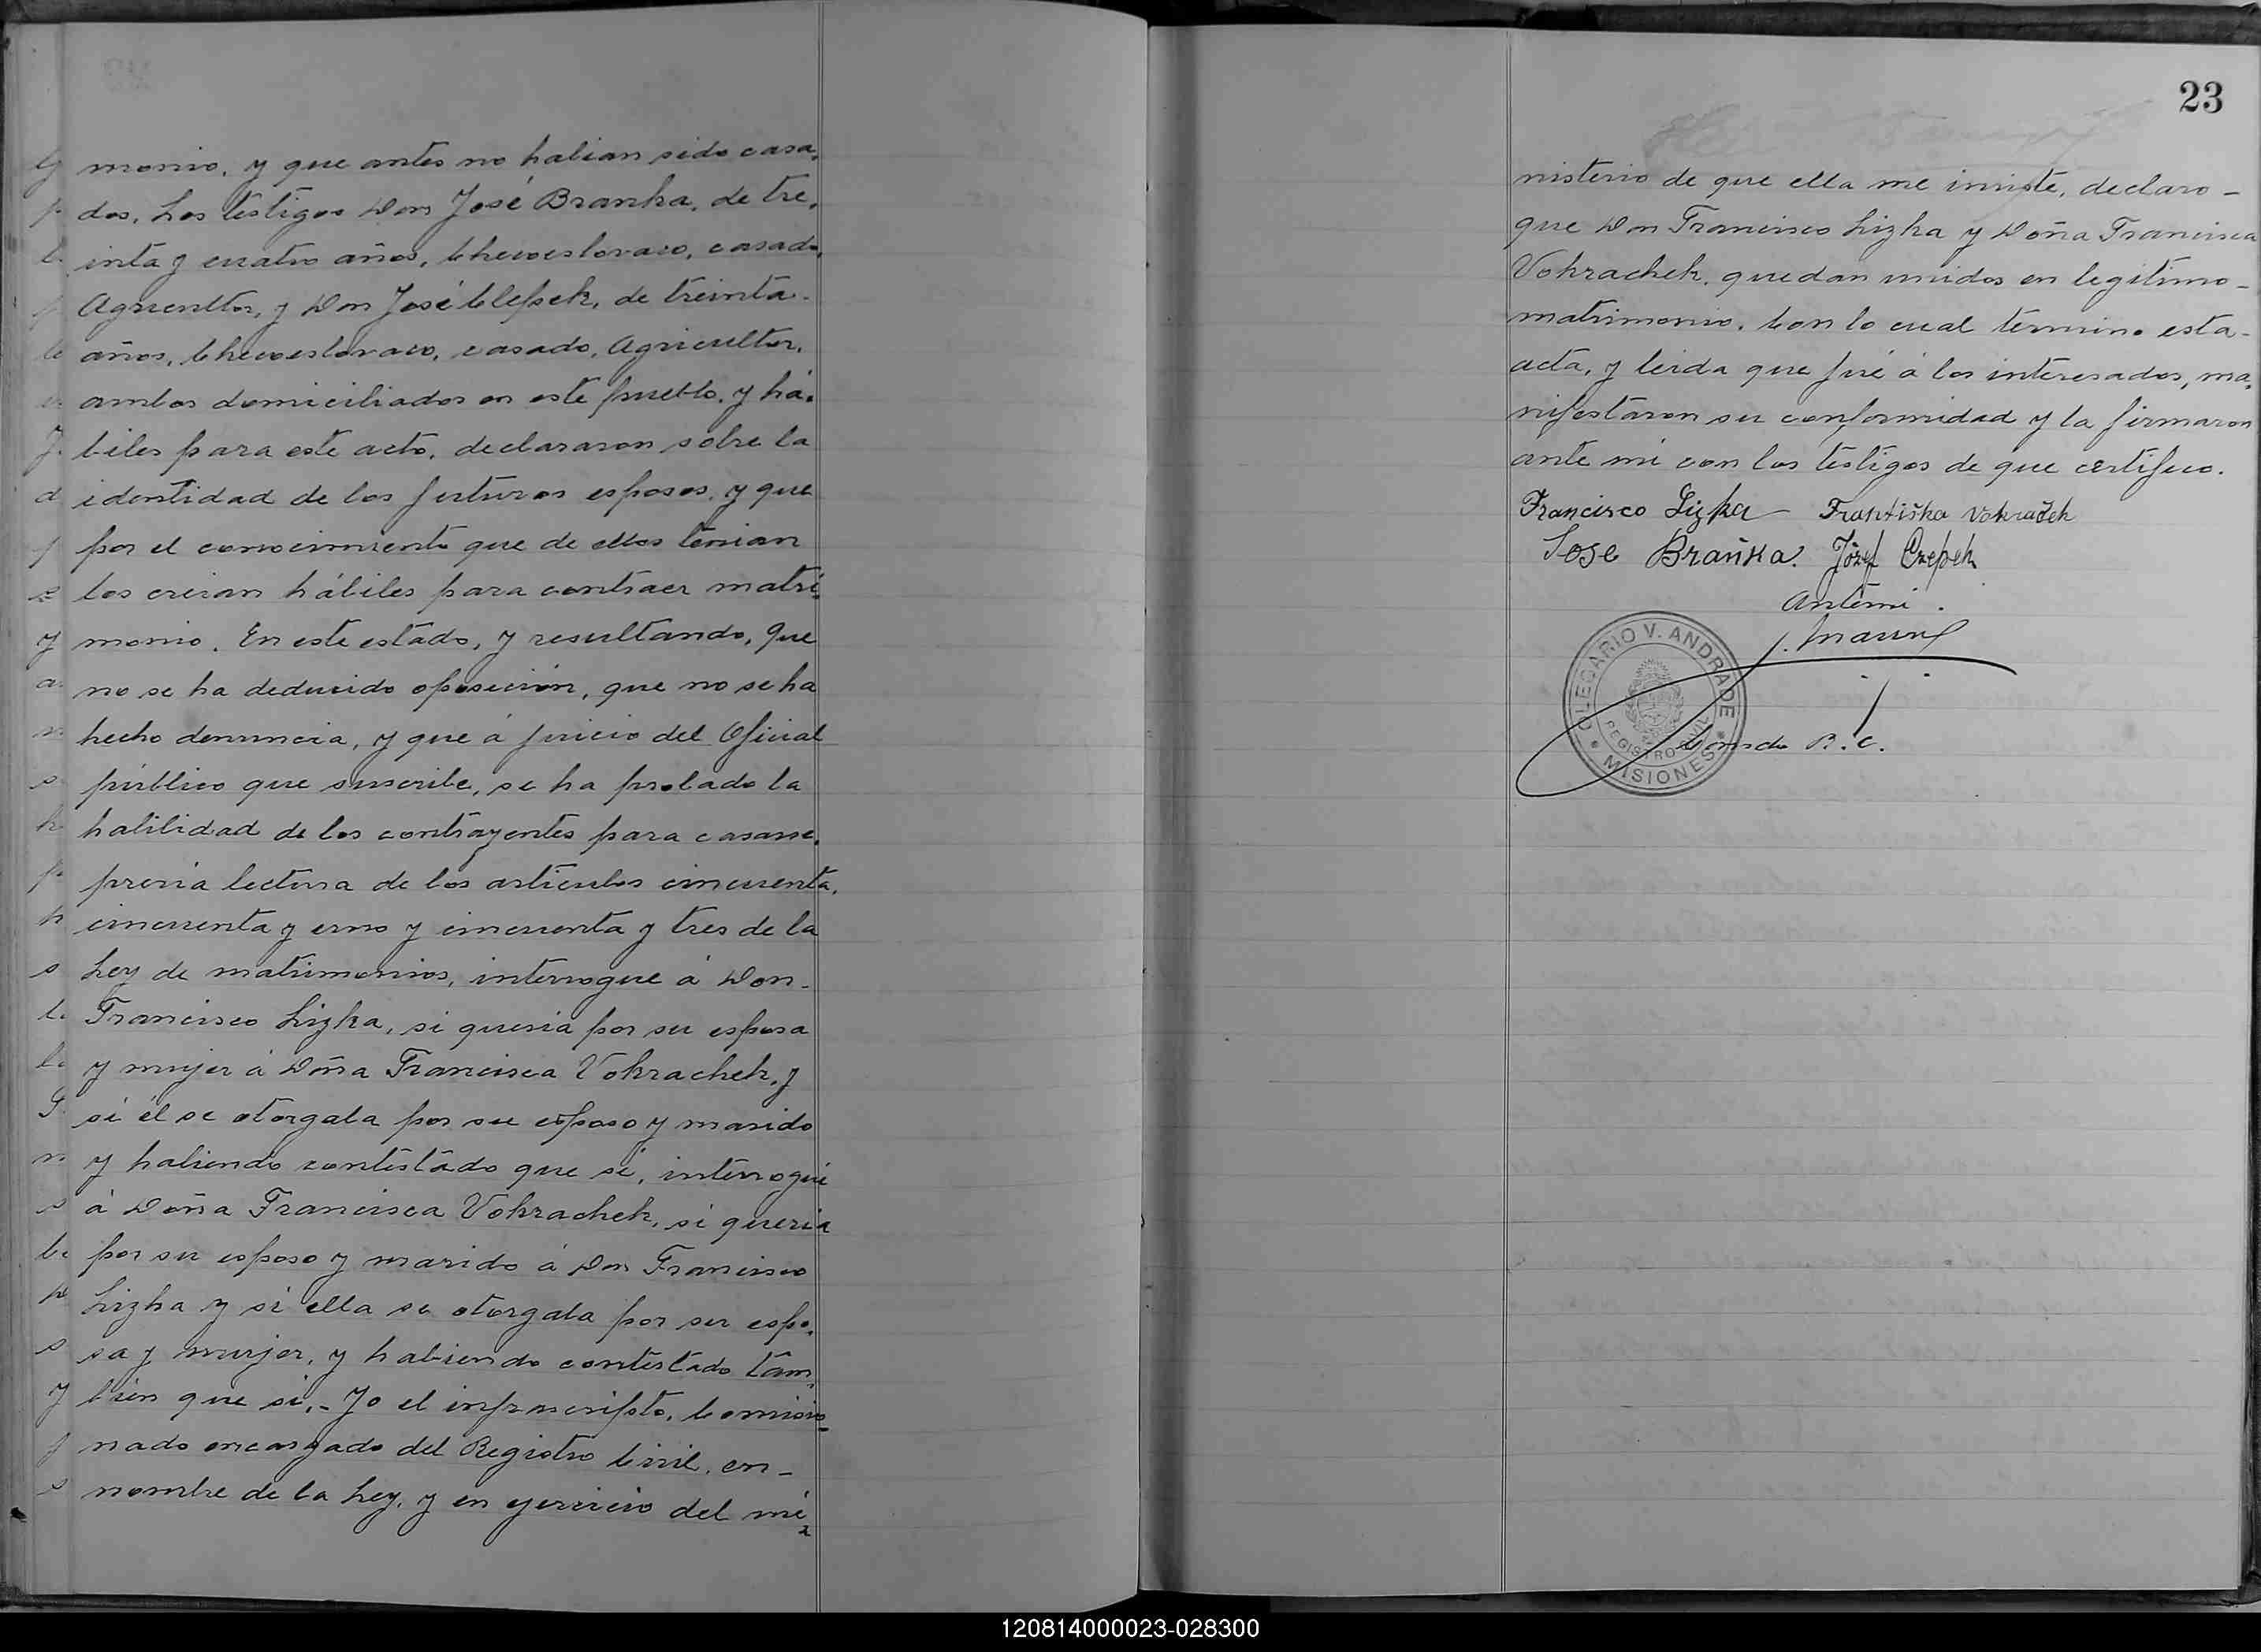 monio, y que antes no habian sido casa,
dos. Los testigos Don José Branka, de tre,
inta y cuatro años, Checoeslovaco, casado,
Agricultor, y Don José Clepsek, de treinta-
años, Checoeslovaco, casado, Agricultor,
ambos domiciliados en este pueblo, y há,
biles para este acto, declararon sobre la
identidad de los futuros esposos, y que
por el conocimiento que de ellos tenian
los creian hábiles para contraer matri,
monio. En este estado, y resultando, que
no se ha deducido oposición, que no se ha
hecho denuncia, y que á juicio del Oficial
público que suscribe, se ha probado la
habilidad de los contrayentes para casarse,
previa lectura de los articulos cincuenta,
cincuenta y uno y cincuenta y tres de la
Ley de matrimonios, interrogue á Don-
Francisco Lizka, si queria por su esposa
y mujer á Doña Francisca Vokrachek, y
si él se otorgaba por su esposo y marido
y habiendo contestado que sí, interrogué
á Doña Francisca Vokrachek, si queria
por su esposo y marido á Don Francisco
Lizka y si ella se otorgaba por su espo,
sa y mujer, y habiendo contestado tam,
bien que si,- Yo el infrascripto, Comisio-
nado encargado del Registro Civil, en-
nombre de la Ley, y en ejercicio del mi,
23
nisterio de que ella me inviste, declaro-
que Don Francisco Lizka y Doña Francisca
Vokrachek, quedan unidos en legitimo-
matrimonio. Con lo cual termino esta-
acta, y leida que fué á los interesados, ma,
nifestaron su conformidad y la firmaron
ante mi con los testigos de que certifico.
Francisco Lizka Františka Vokraček
Jose Braňka. Józef Czepek
Antemi.
OLEGARIO V. ANDRADE
REGISTRO CIVIL
MISIONES
Comdo R.C.
120814000023-028300